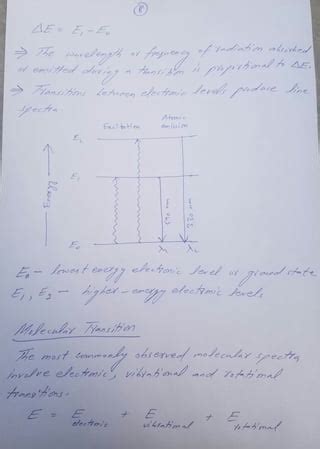 8
ΔE = E₁ - E₀
⇒ The wavelength or frequency of radiation absorbed
or emitted during a transition is proportional to ΔE.
⇒ Transitions between electronic levels produce line
spectra.
Excitation
Atomic
emission
E₂
E₁
E₀
Energy
590 nm
330 nm
λ₁ λ₂
E₀ - lowest energy electronic level or ground state
E₁, E₂ - higher-energy electronic levels
Molecular Transition
The most commonly observed molecular spectra
involve electronic, vibrational and rotational
transitions.
E = E electronic + E vibrational + E rotational